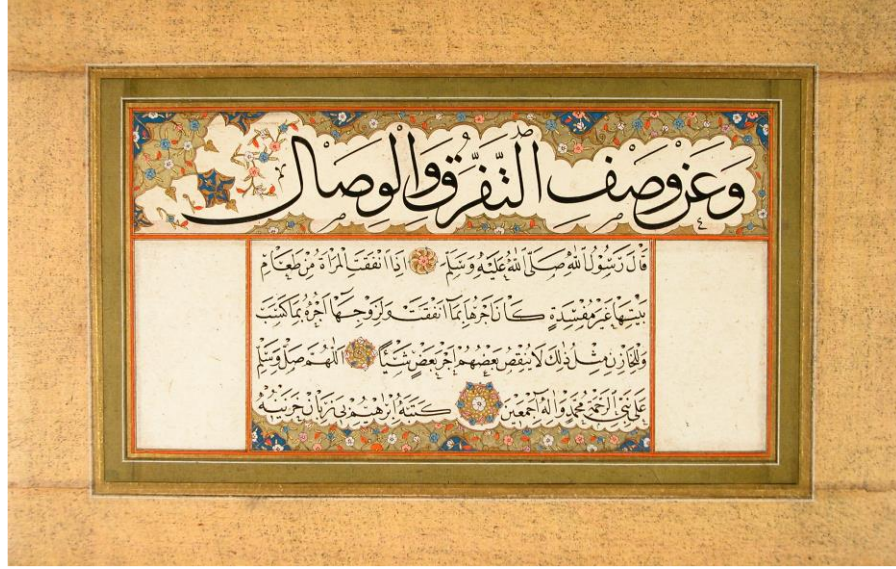 وَعَنْ وَصْفِ التَّفَرُّقِ وَالْوِصَالِ
قَالَ رَسُولُ اللّٰهِ صَلَّى اللّٰهُ عَلَيْهِ وَسَلَّمَ اِذَا اَنْفَقَتِ الْمَرْاَةُ مِنْ طَعَامِ
بَيْتِهَا غَيْرَ مُفْسِدَةٍ كَانَ اَجْرُهَا بِمَا اَنْفَقَتْ وَلِزَوْجِهَا اَجْرُهُ بِمَا كَسَبَ
وَلِلْخَازِنِ مِثْلُ ذٰلِكَ لَا يَنْقُصُ بَعْضُهُمْ اَجْرَ بَعْضٍ شَيْئًا اَللّٰهُمَّ صَلِّ وَسَلِّمْ
عَلٰى نَبِيِّ الرَّحْمَةِ مُحَمَّدٍ وَاٰلِهِ اَجْمَعِينَ كَتَبَهُ اِبْرٰهِيمُ